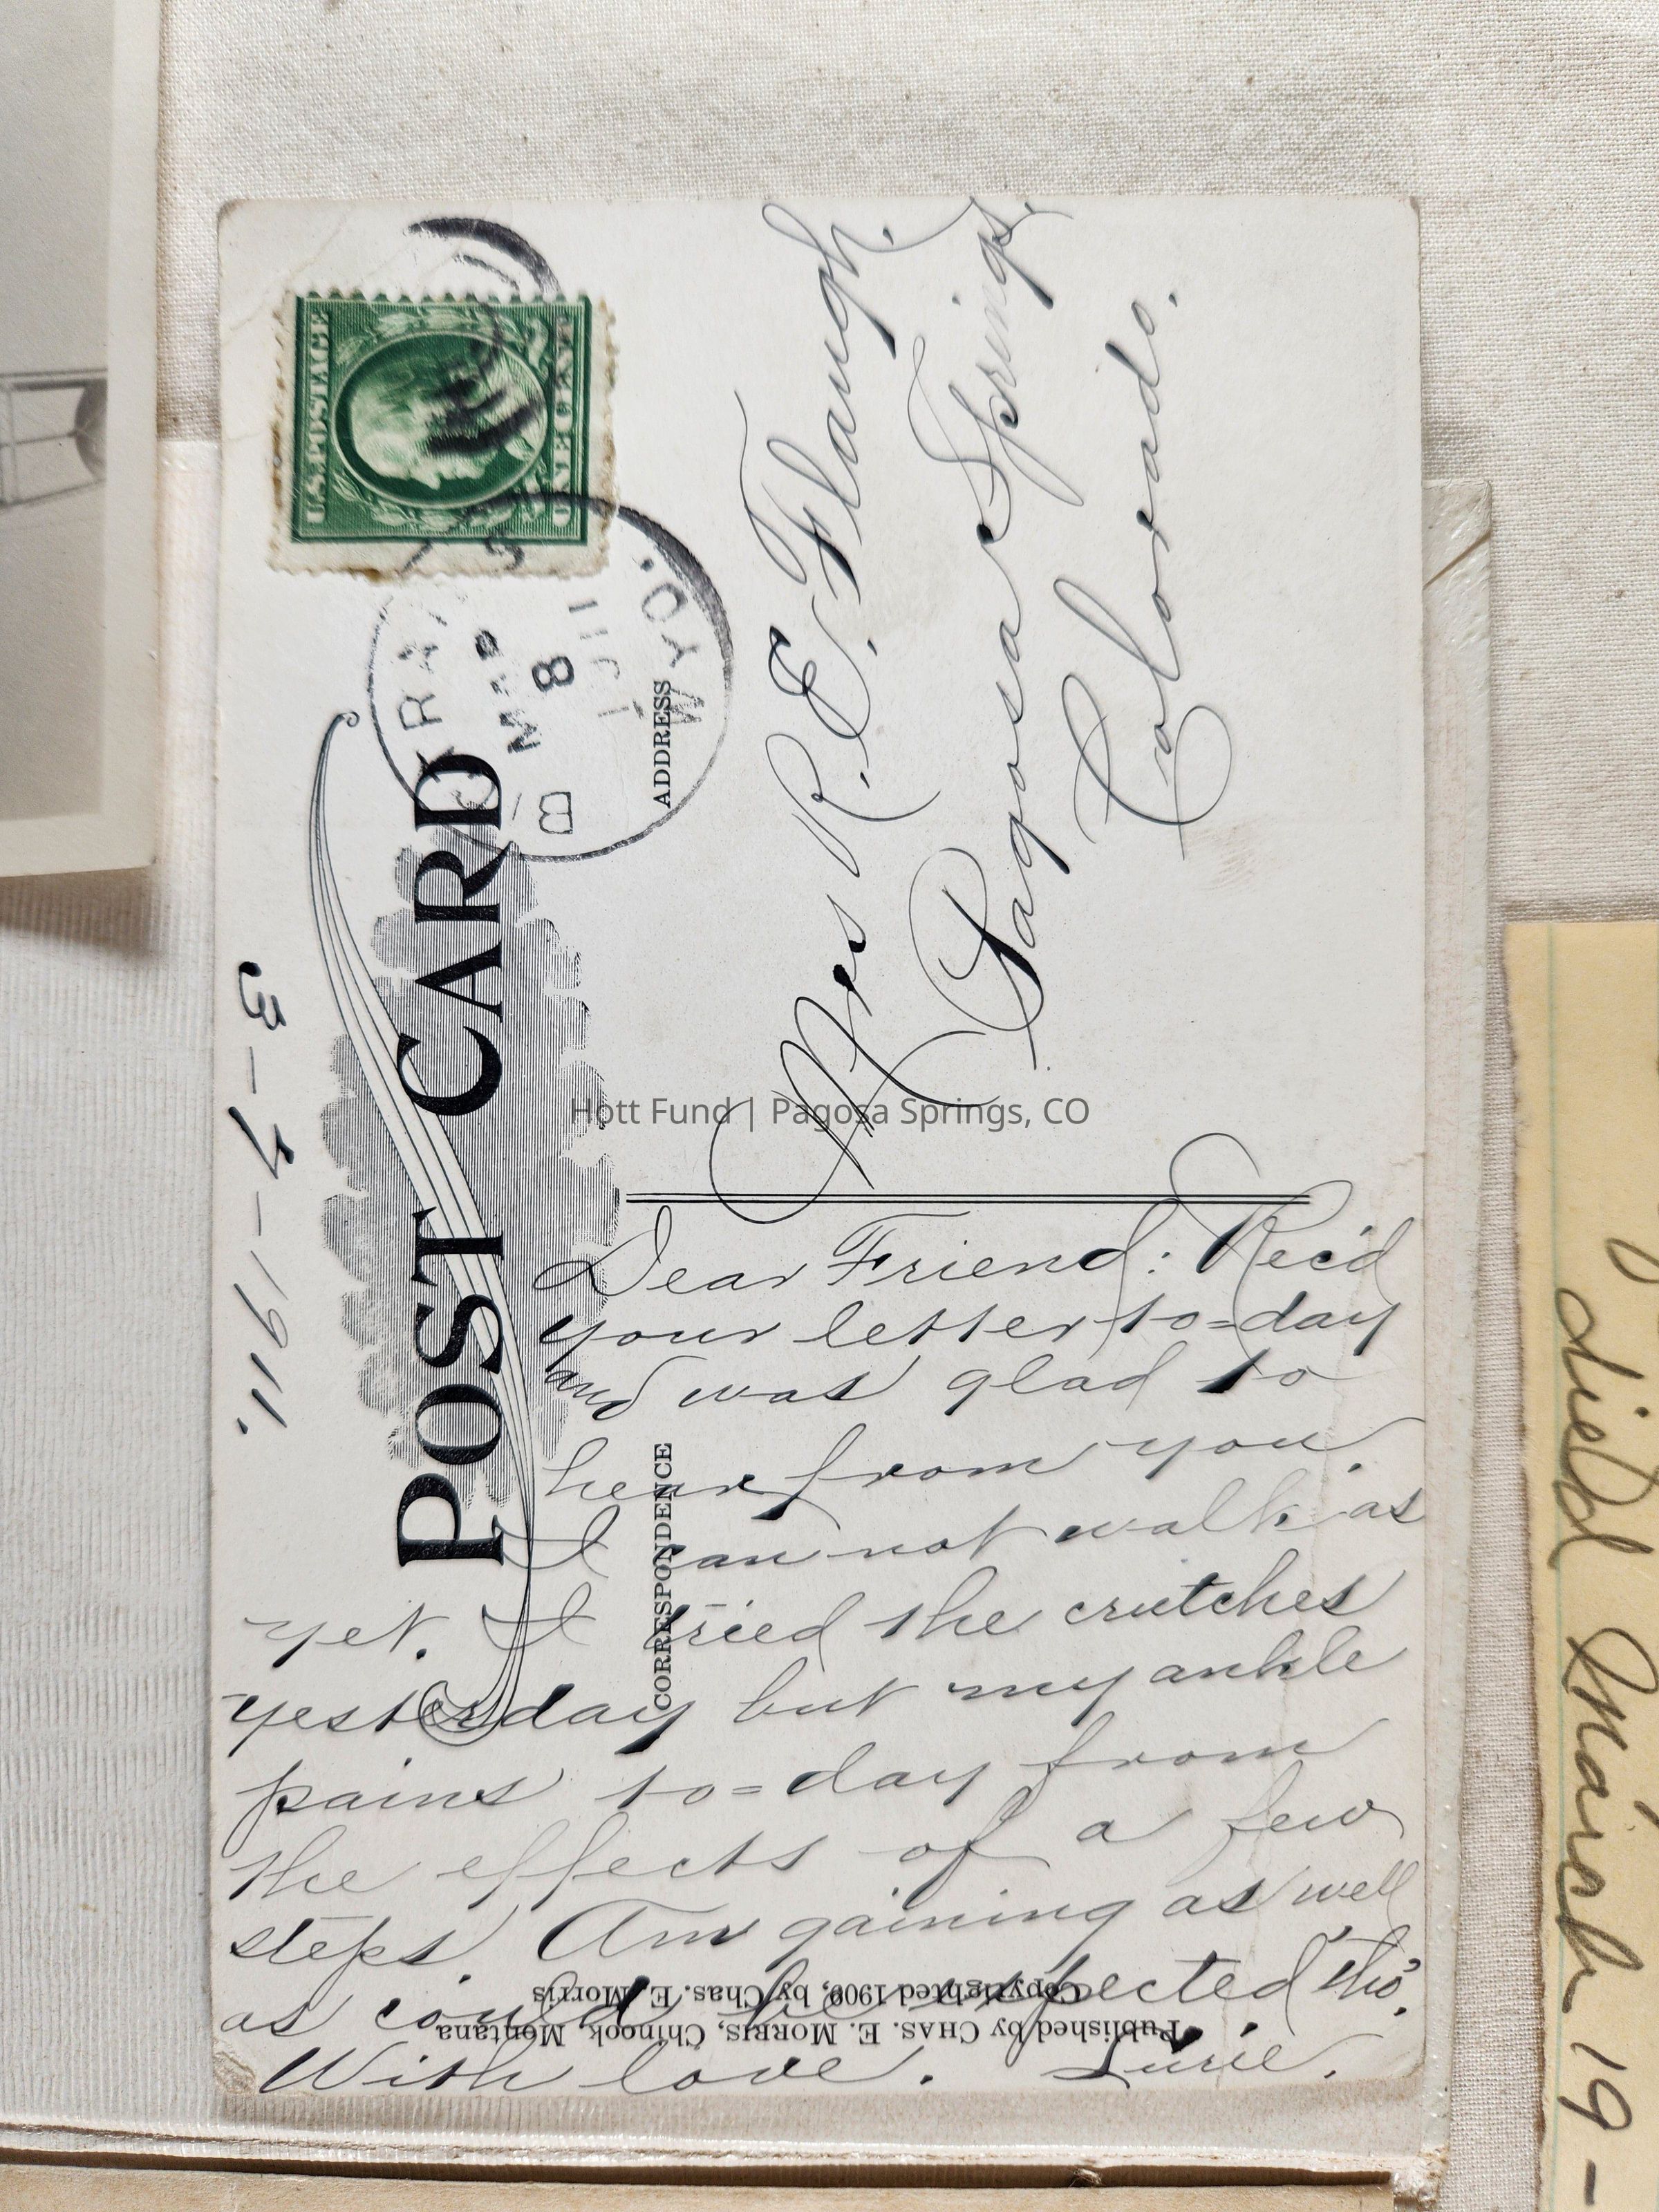 3-7-1911.
POST CARD
U.S. POSTAGE
ONE CENT
MAR
8
1911
WYO.
ADDRESS
Mrs R. E. Flaugh.
Pagosa Springs.
Colorado.
Hott Fund | Pagosa Springs, CO
CORRESPONDENCE
Dear Friend: Rec'd
your letter to=day
and was glad to
hear from you.
I can not walk as
yet. I tried the crutches
yesterday but my ankle
pains to=day from
the effects of a few
steps. Am gaining as well
as could be expected tho'.
With love.
Copyrighted 1909, by Chas. E. Morris
Published by CHAS. E. MORRIS, Chinook, Montana
died March 19-